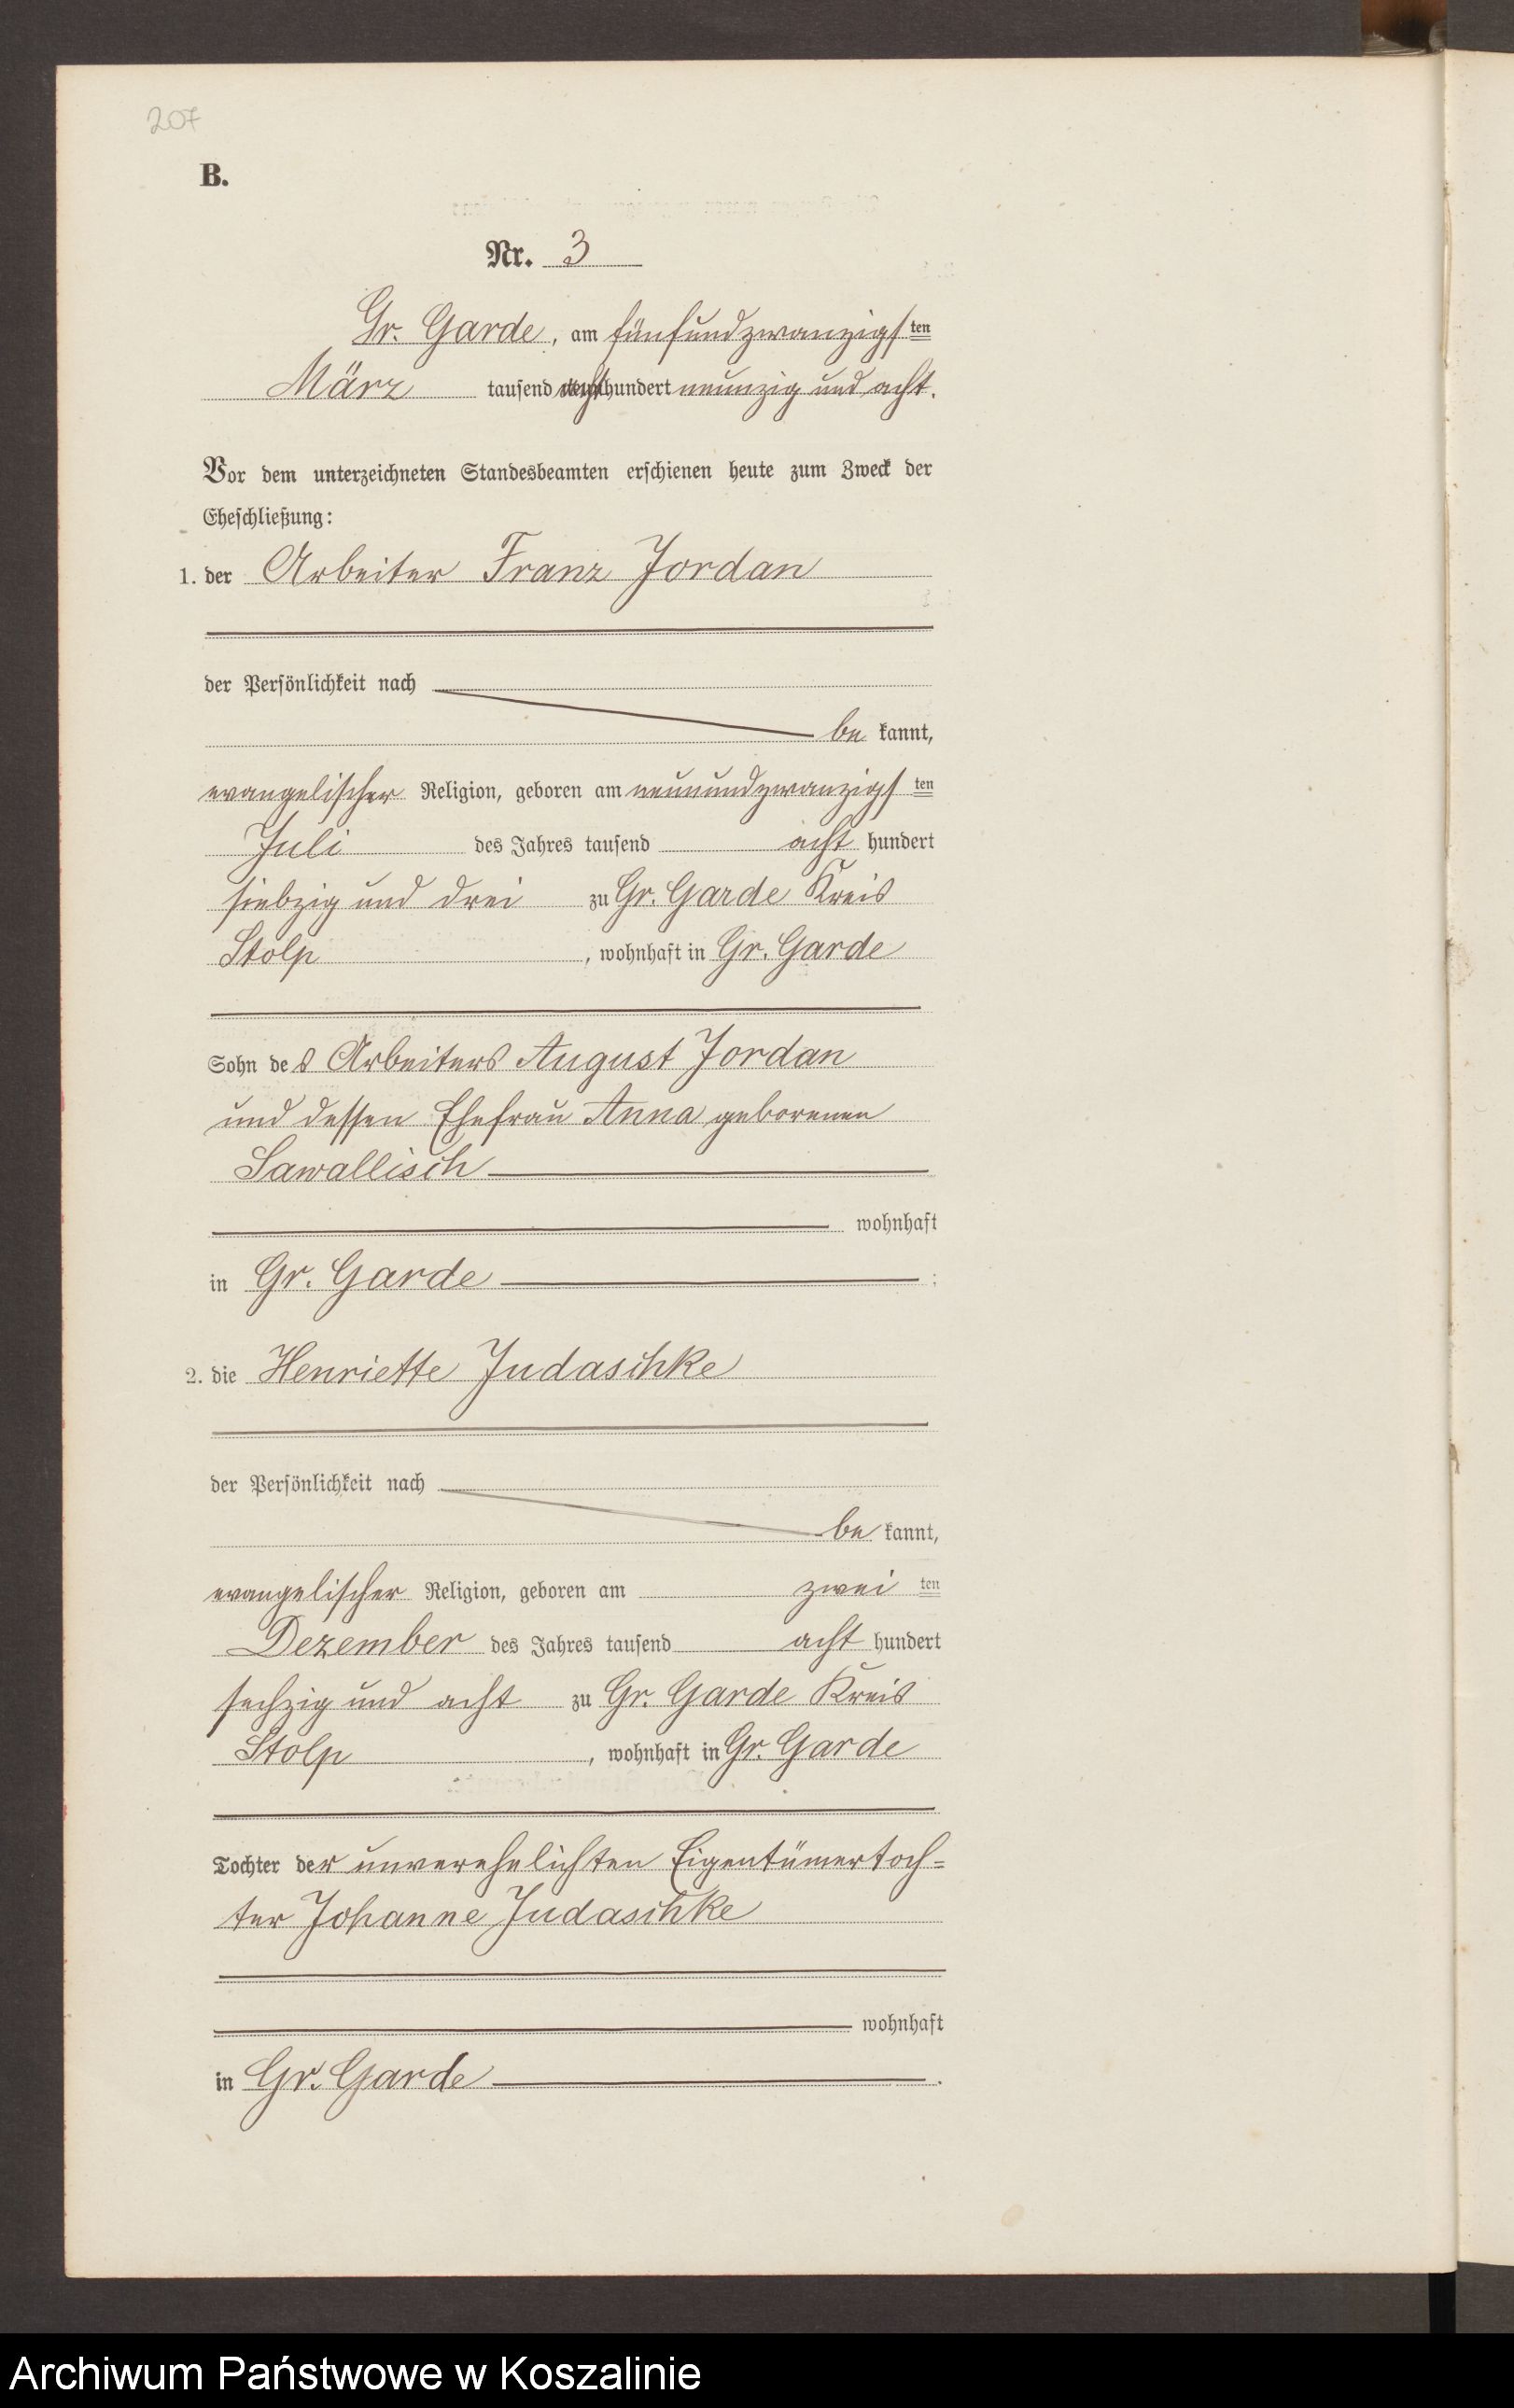 207
B.
Nr. 3
Gr. Garde, am fünfundzwanzigsten
März tausend achthundert neunzig und acht.
Vor dem unterzeichneten Standesbeamten erschienen heute zum Zweck der
Eheschließung:
1. der Arbeiter Franz Jordan
der Persönlichkeit nach
be kannt,
evangelischer Religion, geboren am neunundzwanzigsten
Juli des Jahres tausend acht hundert
siebzig und drei zu Gr. Garde Kreis
Stolp, wohnhaft in Gr. Garde
Sohn des Arbeiters August Jordan
und dessen Ehefrau Anna geborenen
Sawallisch
wohnhaft
in Gr. Garde ;
2. die Henriette Judaschke
der Persönlichkeit nach
be kannt,
evangelischer Religion, geboren am zweiten
Dezember des Jahres tausend acht hundert
sechzig und acht zu Gr. Garde Kreis
Stolp, wohnhaft in Gr. Garde
Tochter der unverehelichten Eigentümertoch=
ter Johanne Judaschke
wohnhaft
in Gr. Garde .
Archiwum Państwowe w Koszalinie